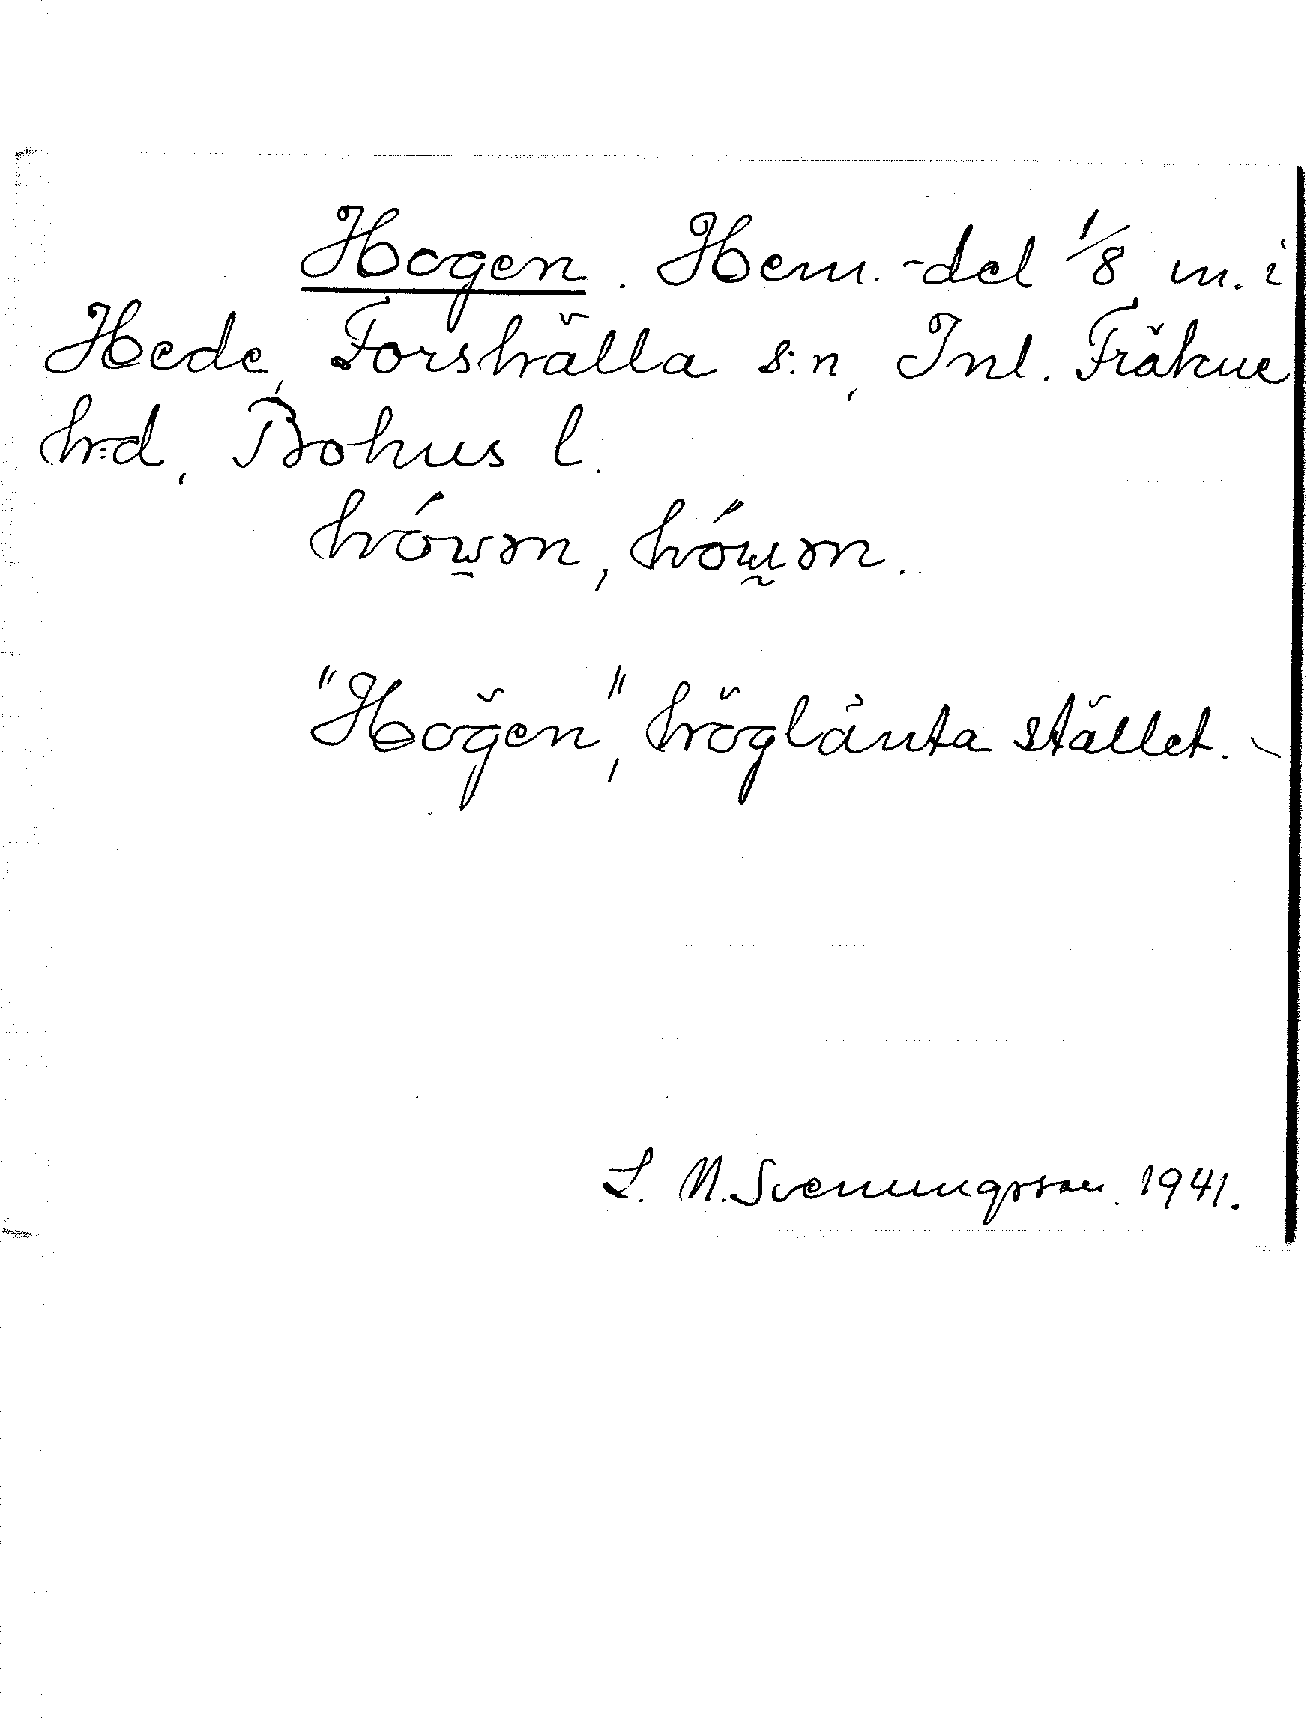 Hogen. Hem.-del 1/8 m. i
Hede, Forshälla s:n, Inl. Fräkne
h:d, Bohus l.
"Högen", höglänta stället. -
L. M. Svenungsson. 1941.